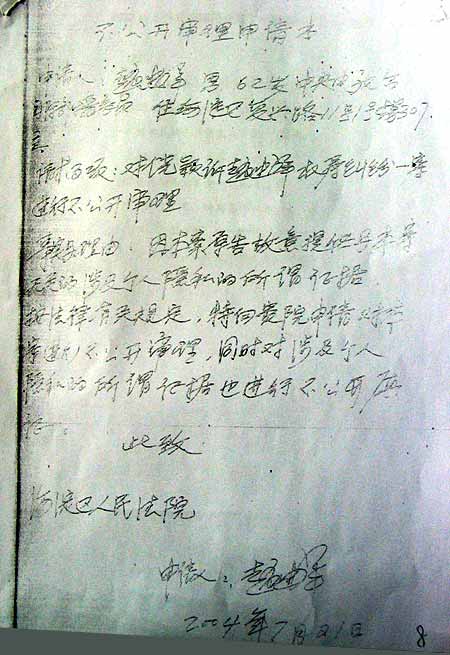 不公开审理申请书
申请人 赵忠祥 男 62岁 中央电视台
播音员 住海淀区复兴路11号1号楼307
室
请求事项：对饶颖诉赵忠祥 纠纷一案
进行不公开审理
事实及理由：因本案原告故意提供与本案
无关的涉及个人隐私的所谓证据
按法律有关规定，特向贵院申请对本
案进行不公开审理，同时对涉及个人
隐私的所谓证据也进行不公开质
证。
此致
海淀区人民法院
申请人：赵忠祥
2004年7月21日
8